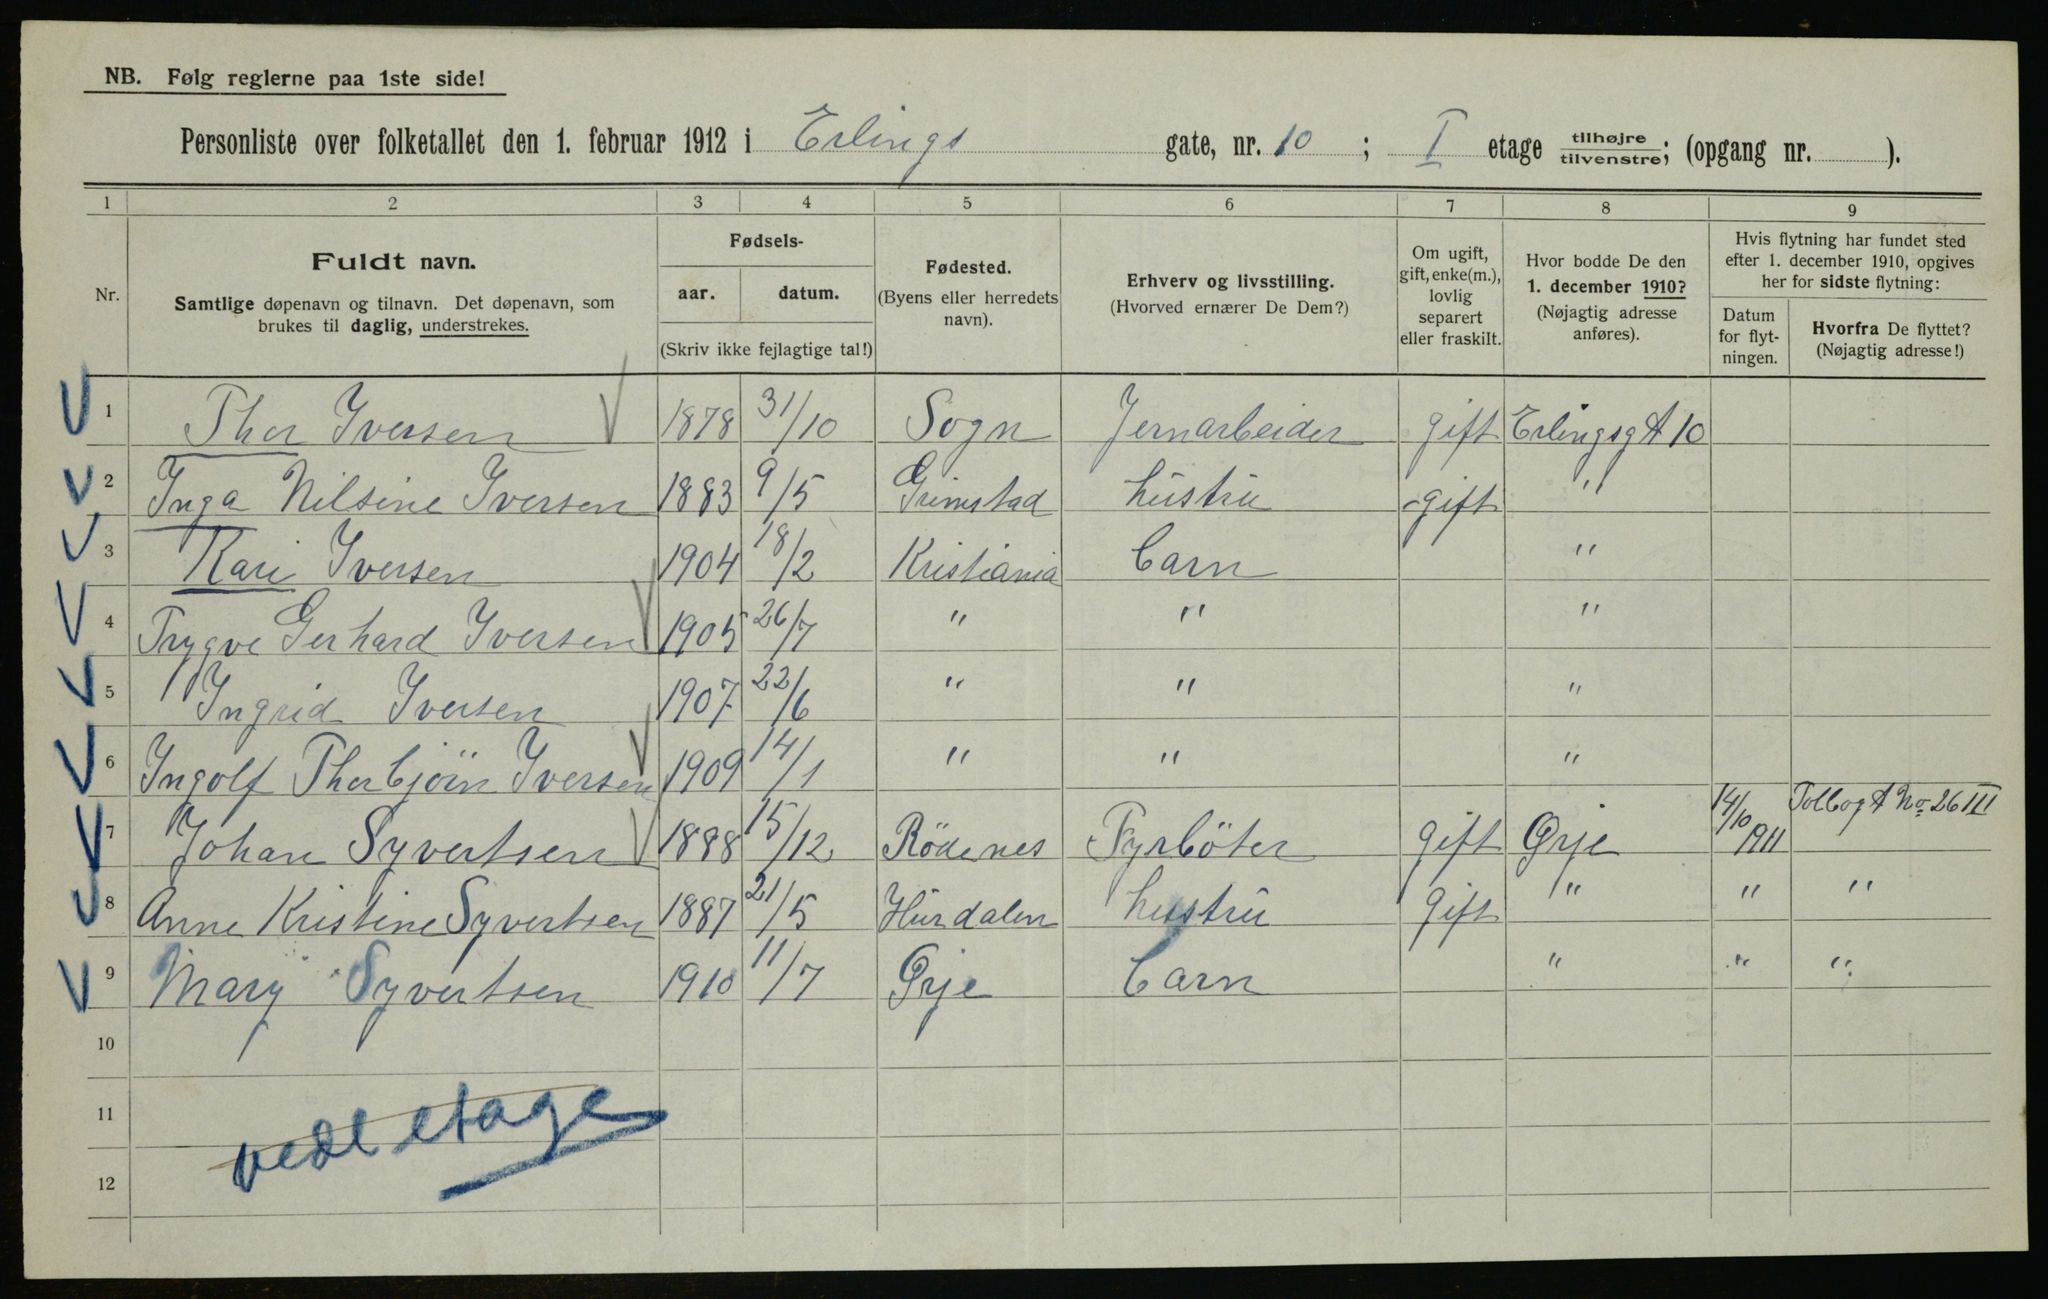 NB. Følg reglerne paa 1ste side!
Personliste over folketallet den 1. februar 1912 i Erlings gate, nr. 10 ; I etage tilhøjre/tilvenstre; (opgang nr. ).
1 2 3 4 5 6 7 8 9
Nr.
Fuldt navn.
Samtlige døpenavn og tilnavn. Det døpenavn, som
brukes til daglig, understrekes.
Fødsels-
aar. datum.
(Skriv ikke fejlagtige tal!)
Fødested.
(Byens eller herredets
navn).
Erhverv og livsstilling.
(Hvorved ernærer De Dem?)
Om ugift,
gift, enke(m.),
lovlig
separert
eller fraskilt.
Hvor bodde De den
1. december 1910?
(Nøjagtig adresse
anføres).
Hvis flytning har fundet sted
efter 1. december 1910, opgives
her for sidste flytning:
Datum
for flyt-
ningen.
Hvorfra De flyttet?
(Nøjagtig adresse!)
1 Thor Iversen 1878 31/10 Sogn Jernarbeider gift Erlingsgt 10
2 Inga Nilsine Iversen 1883 9/5 Grimstad hustru gift "
3 Kari Iversen 1904 18/2 Kristiania Barn "
4 Trygve Gerhard Iversen 1905 26/7 " " "
5 Ingrid Iversen 1907 22/6 " " "
6 Ingolf Thorbjörn Iversen 1909 14/1 " " "
7 Johan Syvertsen 1888 15/12 Rödenes Fyrböter gift Ørje 14/10 1911 Tolbogt No 26 III
8 Anne Kristine Syvertsen 1887 21/5 Hurdalen hustru gift " " "
9 Mary Syvertsen 1910 11/7 Ørje Barn " " "
10
11
12
vedl etage